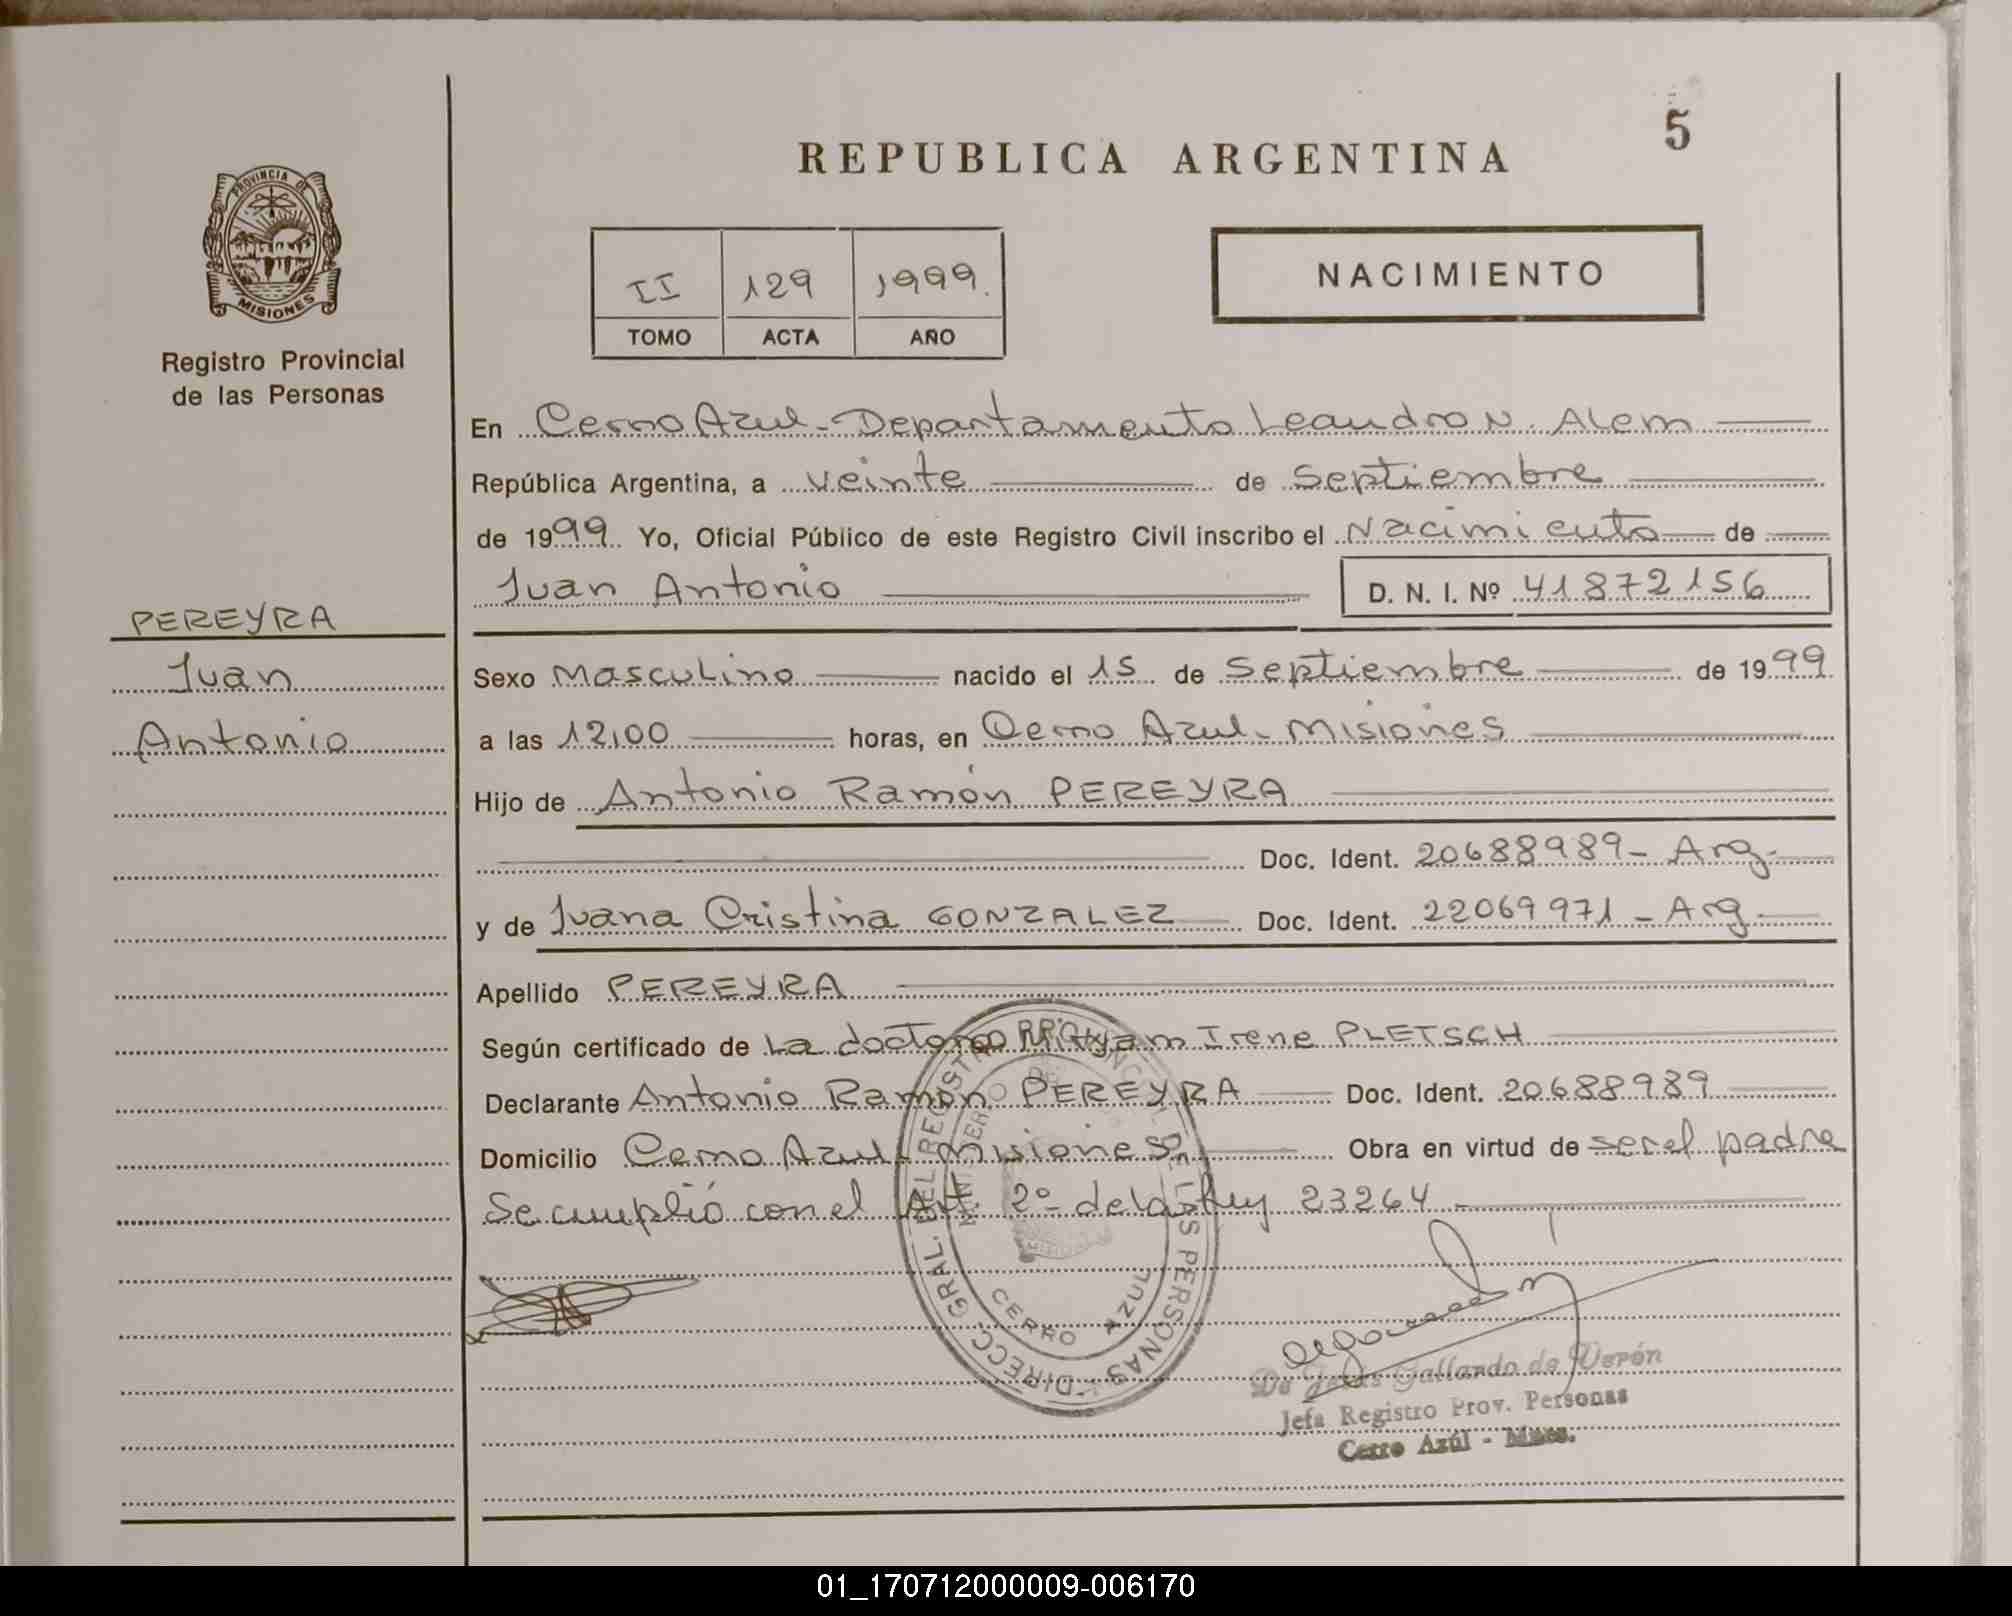 5
REPUBLICA ARGENTINA
PROVINCIA DE
MISIONES
Registro Provincial
de las Personas
II 129 1999.
TOMO ACTA AÑO
NACIMIENTO
En Cerro Azul - Departamento Leandro N. Alem
República Argentina, a veinte de Septiembre
de 1999. Yo, Oficial Público de este Registro Civil inscribo el Nacimiento de
Juan Antonio D. N. I. Nº 41872156
PEREYRA
Juan
Antonio
Sexo Masculino nacido el 15 de Septiembre de 1999
a las 12,00 horas, en Cerro Azul - Misiones
Hijo de Antonio Ramón PEREYRA
Doc. Ident. 20688989 - Arg.
y de Juana Cristina GONZALEZ Doc. Ident. 22069971 - Arg
Apellido PEREYRA
Según certificado de La doctora Miryam Irene PLETSCH
Declarante Antonio Ramón PEREYRA Doc. Ident. 20688989
Domicilio Cerro Azul Misiones Obra en virtud de ser el padre
Se cumplió con el Art. 2º de la Ley 23264
DIRECC. GRAL. DEL REGISTRO PROVINCIAL DE LAS PERSONAS
CERRO AZUL
De Jesús Gallardo de Verón
Jefa Registro Prov. Personas
Cerro Azul - Mnes.
01_170712000009-006170